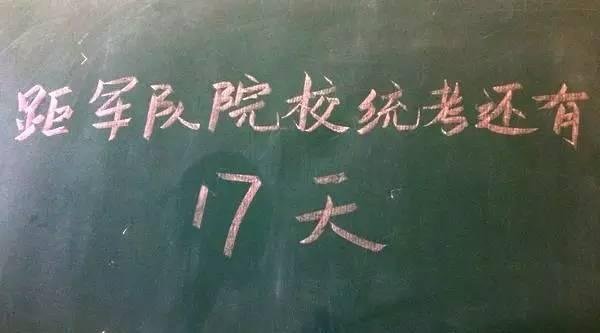 距军队院校统考还有
17天